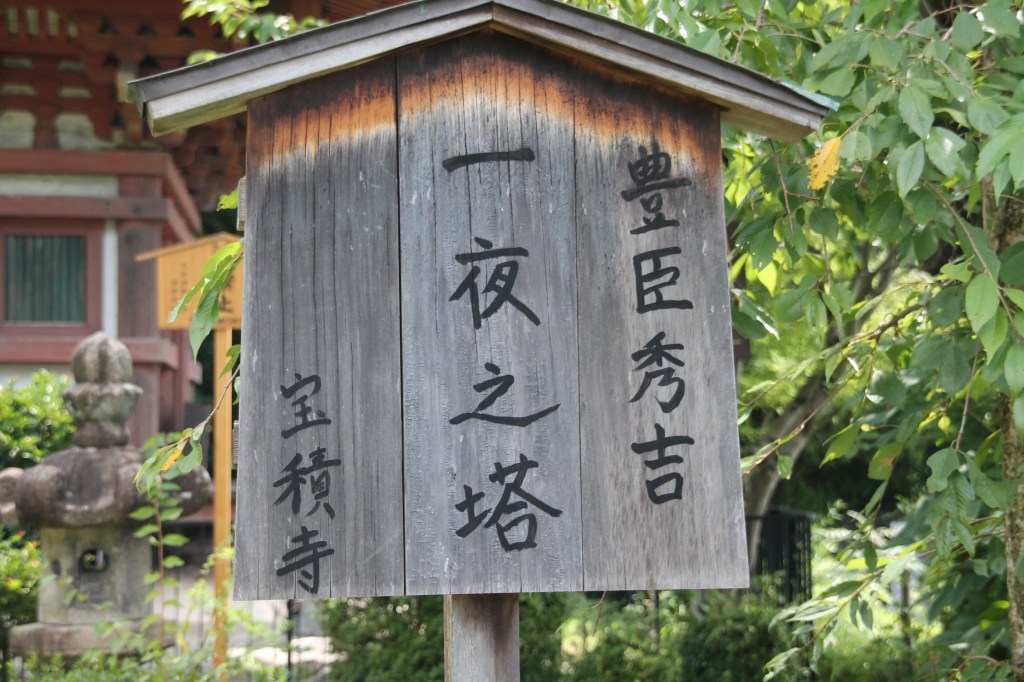 豊臣秀吉
一夜之塔
宝積寺